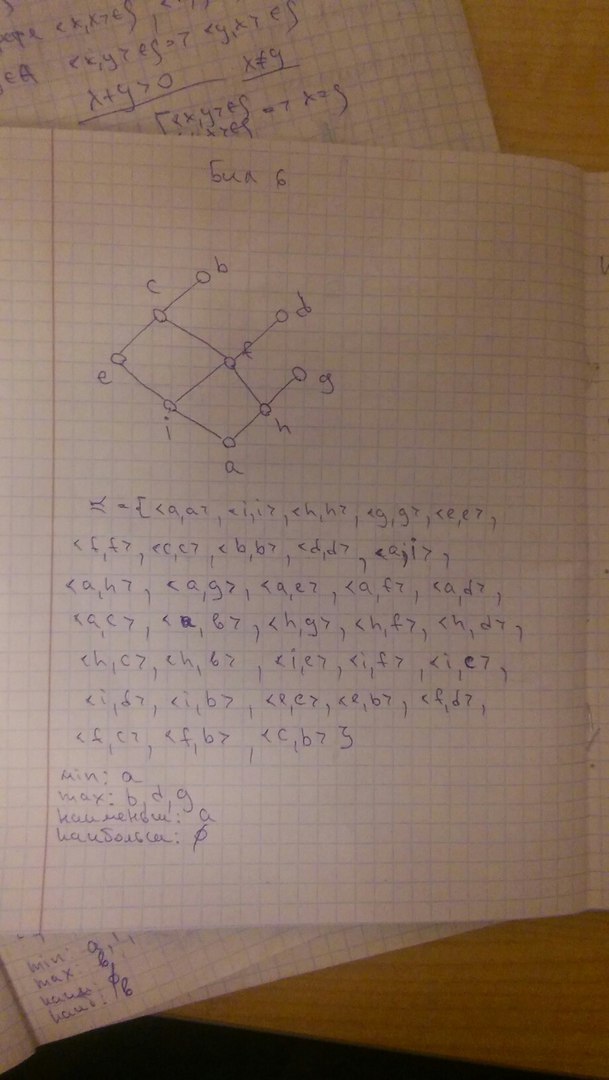 <x,x>∈ρ
<x,y>∈ρ => <y,x>∈ρ
x+y>0 x≠y
<x,y>∈ρ => x=y
Бил 6
b
c
d
f
e
g
i
h
a
≼ = {<a,a>, <i,i>, <h,h>, <g,g>, <e,e>,
<f,f>, <c,c>, <b,b>, <d,d>, <a,i>,
<a,h>, <a,g>, <a,e>, <a,f>, <a,d>,
<a,c>, <a,в>, <h,g>, <h,f>, <h,d>,
<h,c>, <h,в>, <i,e>, <i,f>, <i,c>,
<i,d>, <i,b>, <e,c>, <e,b>, <f,d>,
<f,c>, <f,b>, <c,b>}
min: a
max: b, d, g
наименьш: a
наибольш: ∅
min: a,
max: в
наим: ∅
наиб: в